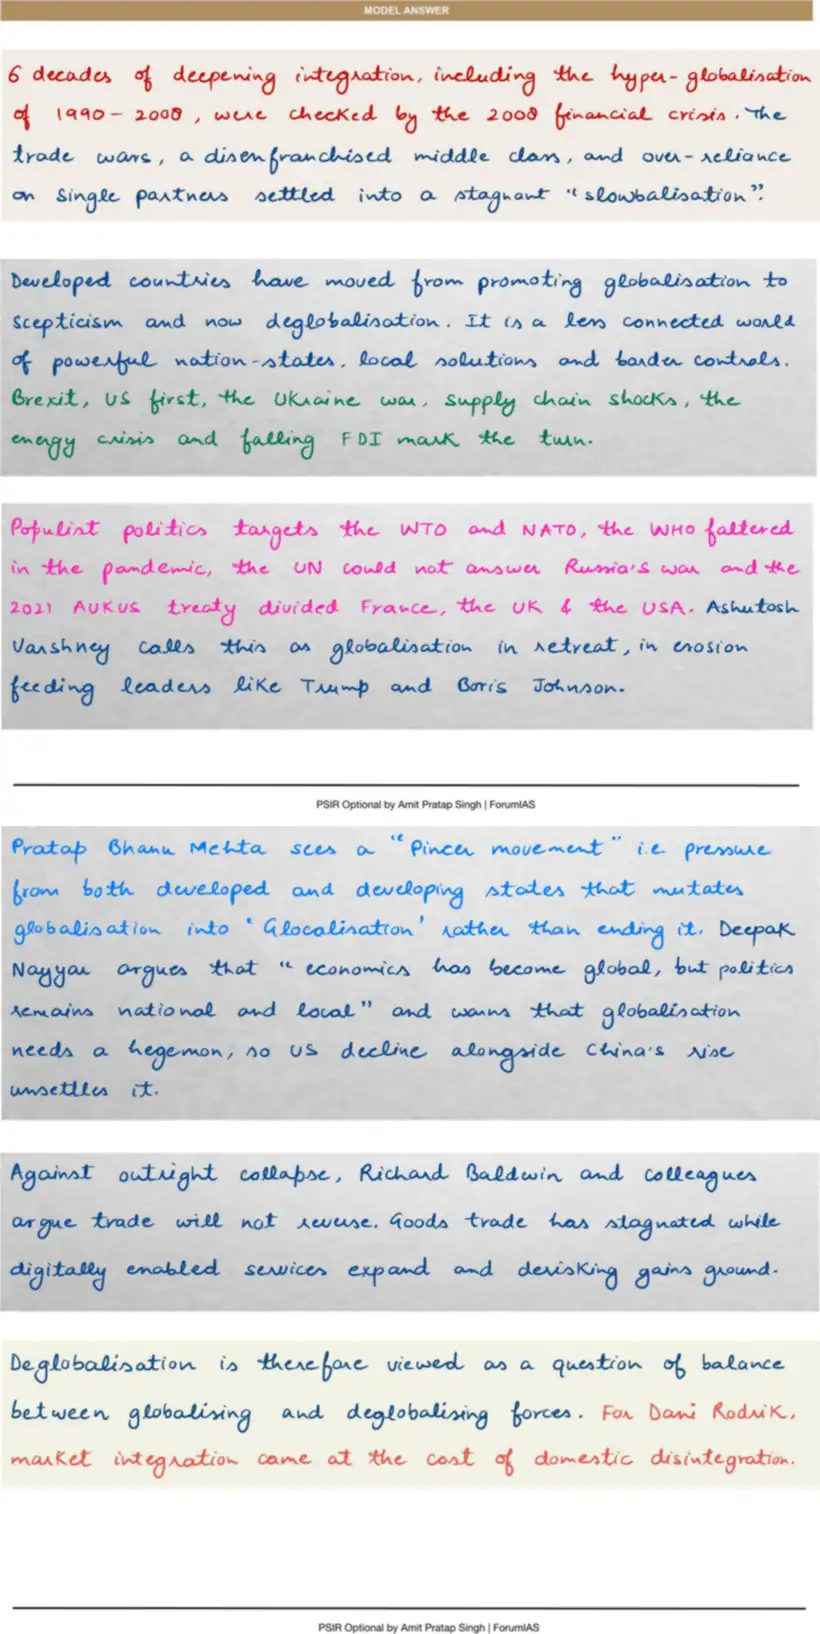 MODEL ANSWER
6 decades of deepening integration, including the hyper-globalisation
of 1990-2008, were checked by the 2008 financial crisis. The
trade wars, a disenfranchised middle class, and over-reliance
on single partners settled into a stagnant "slowbalisation".
Developed countries have moved from promoting globalisation to
scepticism and now deglobalisation. It is a less connected world
of powerful nation-states, local solutions and border controls.
Brexit, US first, the Ukraine war, supply chain shocks, the
energy crisis and falling FDI mark the turn.
Populist politics targets the WTO and NATO, the WHO faltered
in the pandemic, the UN could not answer Russia's war and the
2021 AUKUS treaty divided France, the UK & the USA. Ashutosh
Varshney calls this as globalisation in retreat, in erosion
feeding leaders like Trump and Boris Johnson.
PSIR Optional by Amit Pratap Singh | ForumIAS
Pratap Bhanu Mehta sees a "Pincer movement" i.e pressure
from both developed and developing states that mutates
globalisation into 'Glocalisation' rather than ending it. Deepak
Nayyar argues that "economics has become global, but politics
remains national and local" and warns that globalisation
needs a hegemon, so US decline alongside China's rise
unsettles it.
Against outright collapse, Richard Baldwin and colleagues
argue trade will not reverse. Goods trade has stagnated while
digitally enabled services expand and derisking gains ground.
Deglobalisation is therefore viewed as a question of balance
between globalising and deglobalising forces. For Dani Rodrik,
market integration came at the cost of domestic disintegration.
PSIR Optional by Amit Pratap Singh | ForumIAS